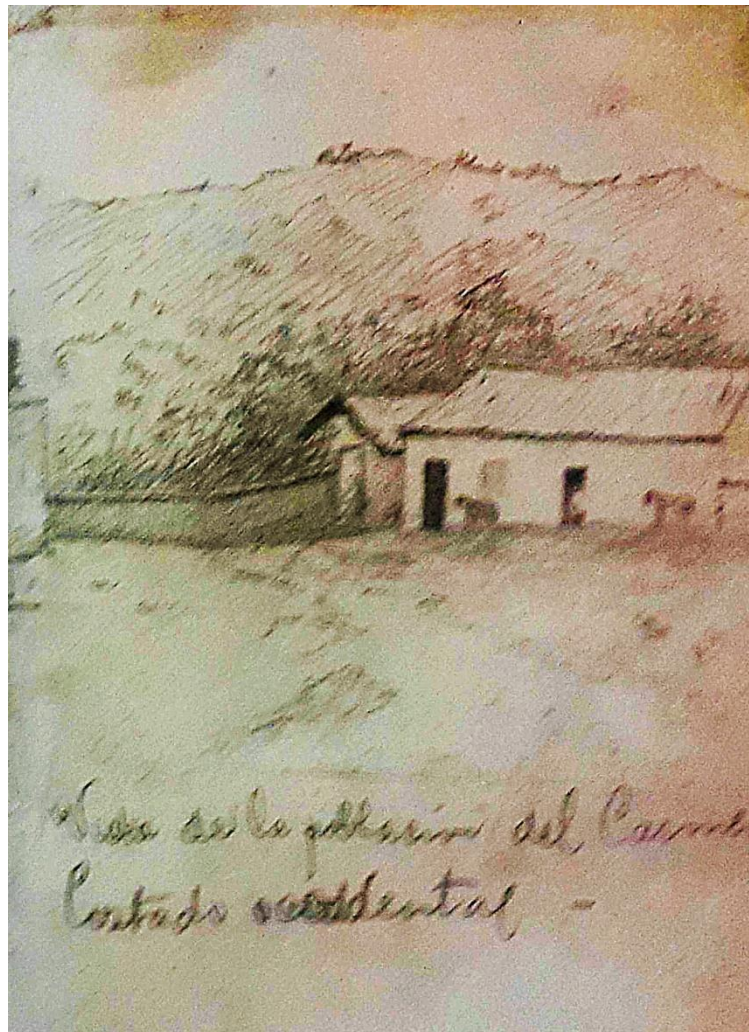 Vista de la poblacion del Carme
Costado occidental -